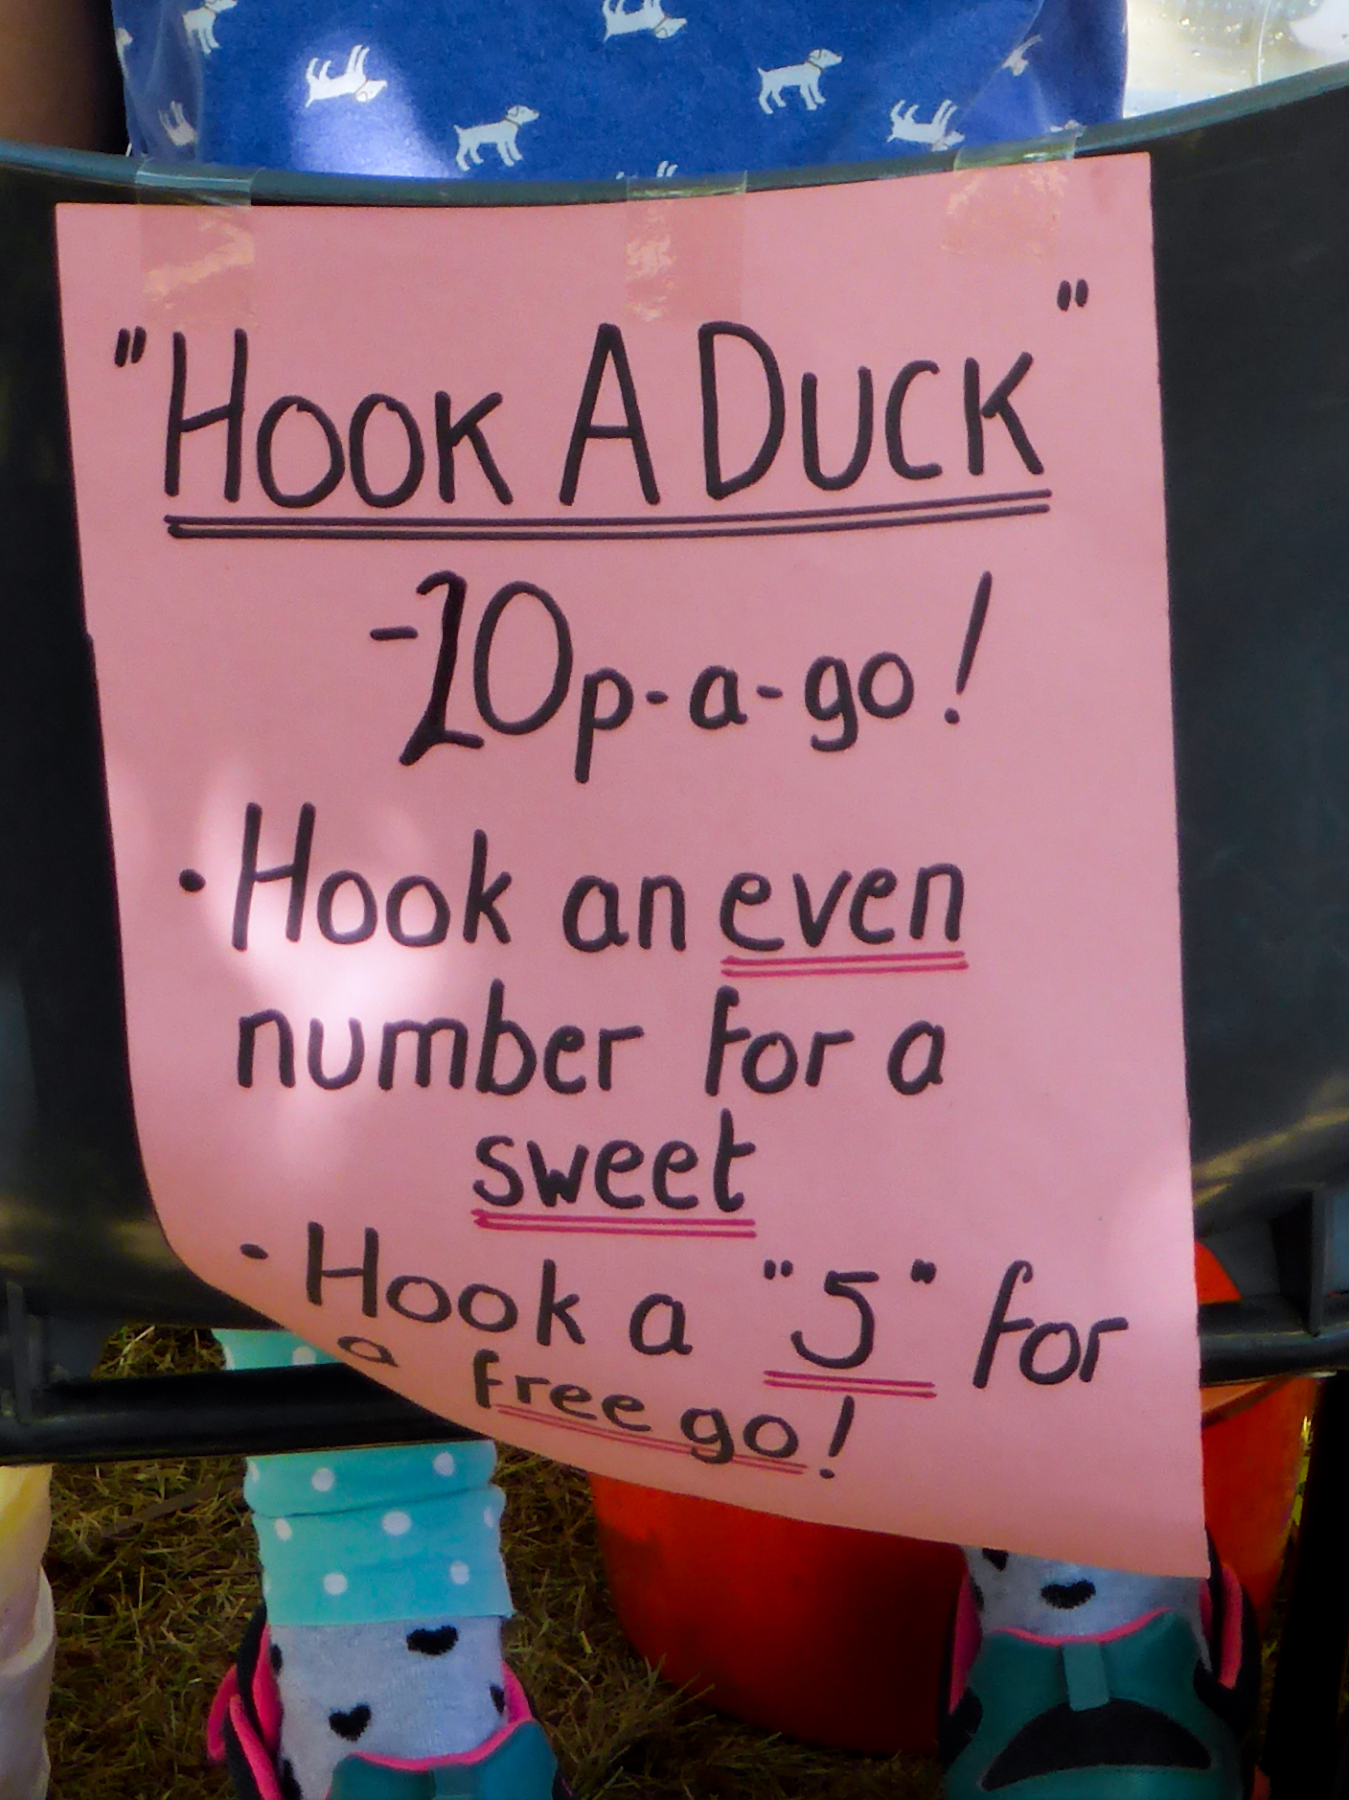 "HOOK A DUCK"
-20p-a-go!
• Hook an even
number for a
sweet
- Hook a "5" for
a free go!